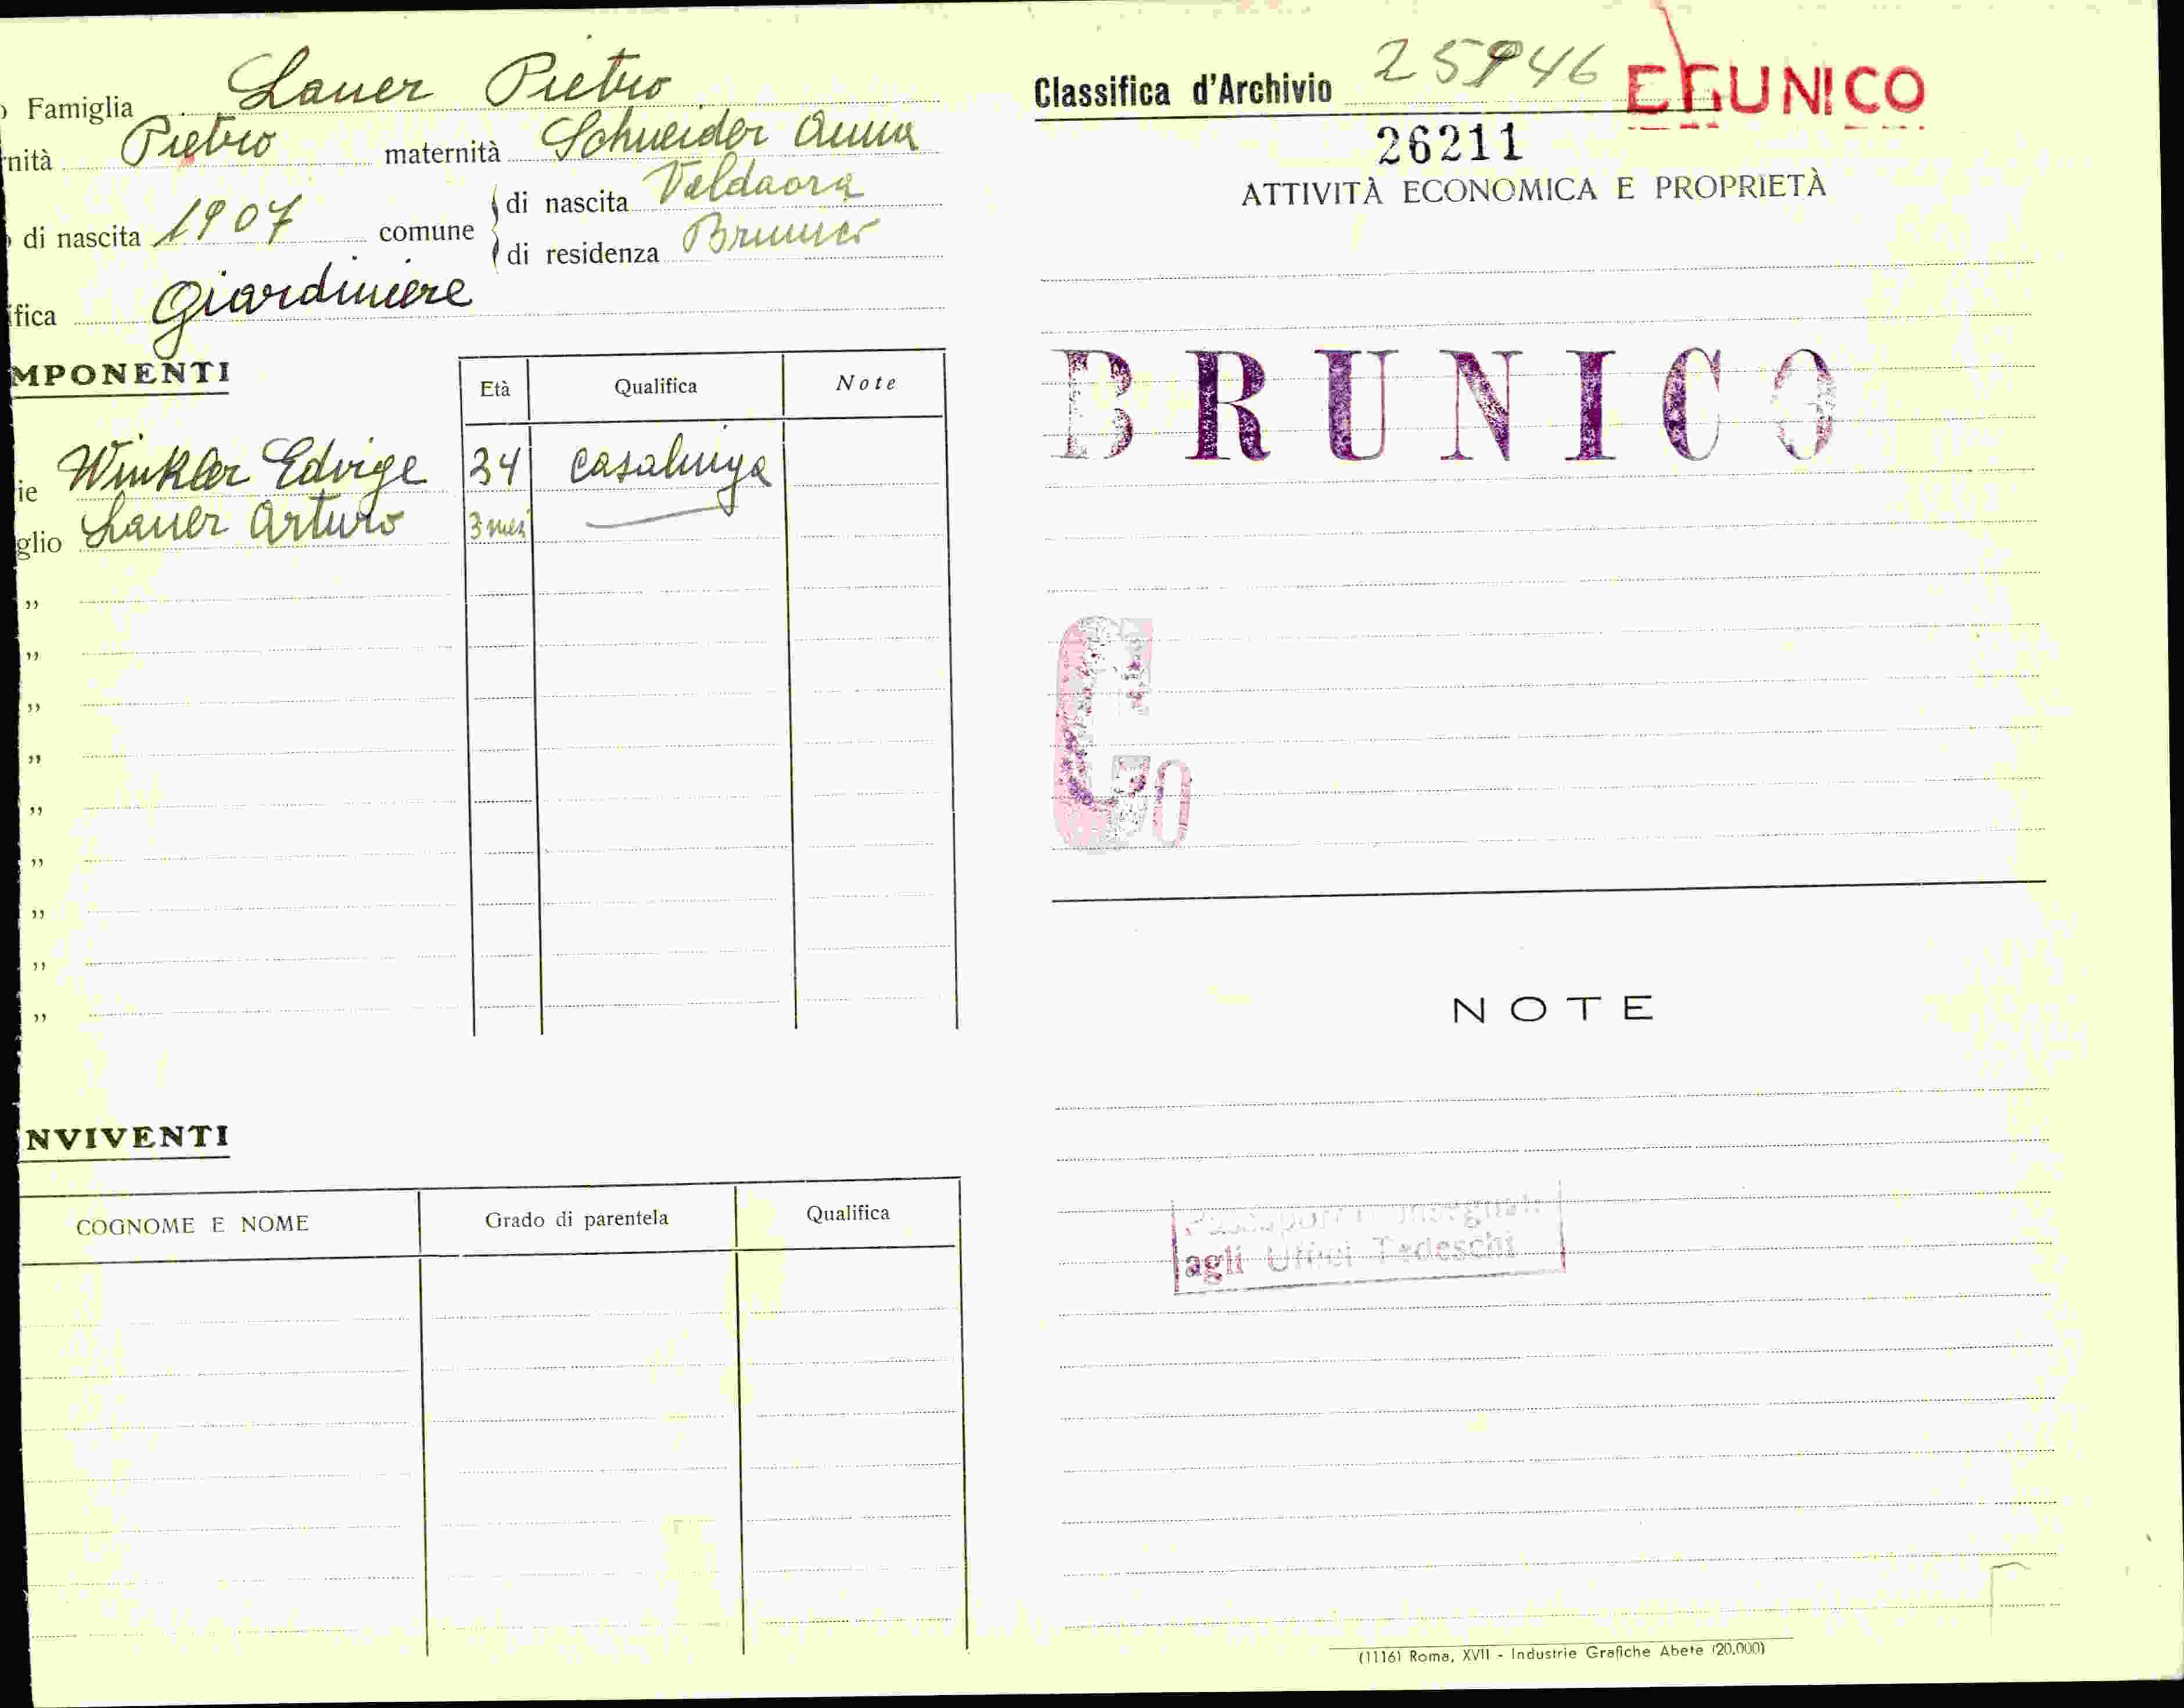 Famiglia Lauer Pietro
nità Pietro maternità Schneider Anna
di nascita 1907 comune di nascita Valdaora
di residenza Brunico
fica Giardiniere
MPONENTI
Età Qualifica Note
ie Winkler Edvige 34 casalinga
glio Lauer Arturo 3 mesi
"
"
"
"
"
"
"
"
"
NVIVENTI
COGNOME E NOME Grado di parentela Qualifica
Classifica d'Archivio 25946 UNICO
26211
ATTIVITÀ ECONOMICA E PROPRIETÀ
BRUNICO
G
NOTE
agli Uffici Tedeschi
(1116) Roma, XVII - Industrie Grafiche Abete (20.000)